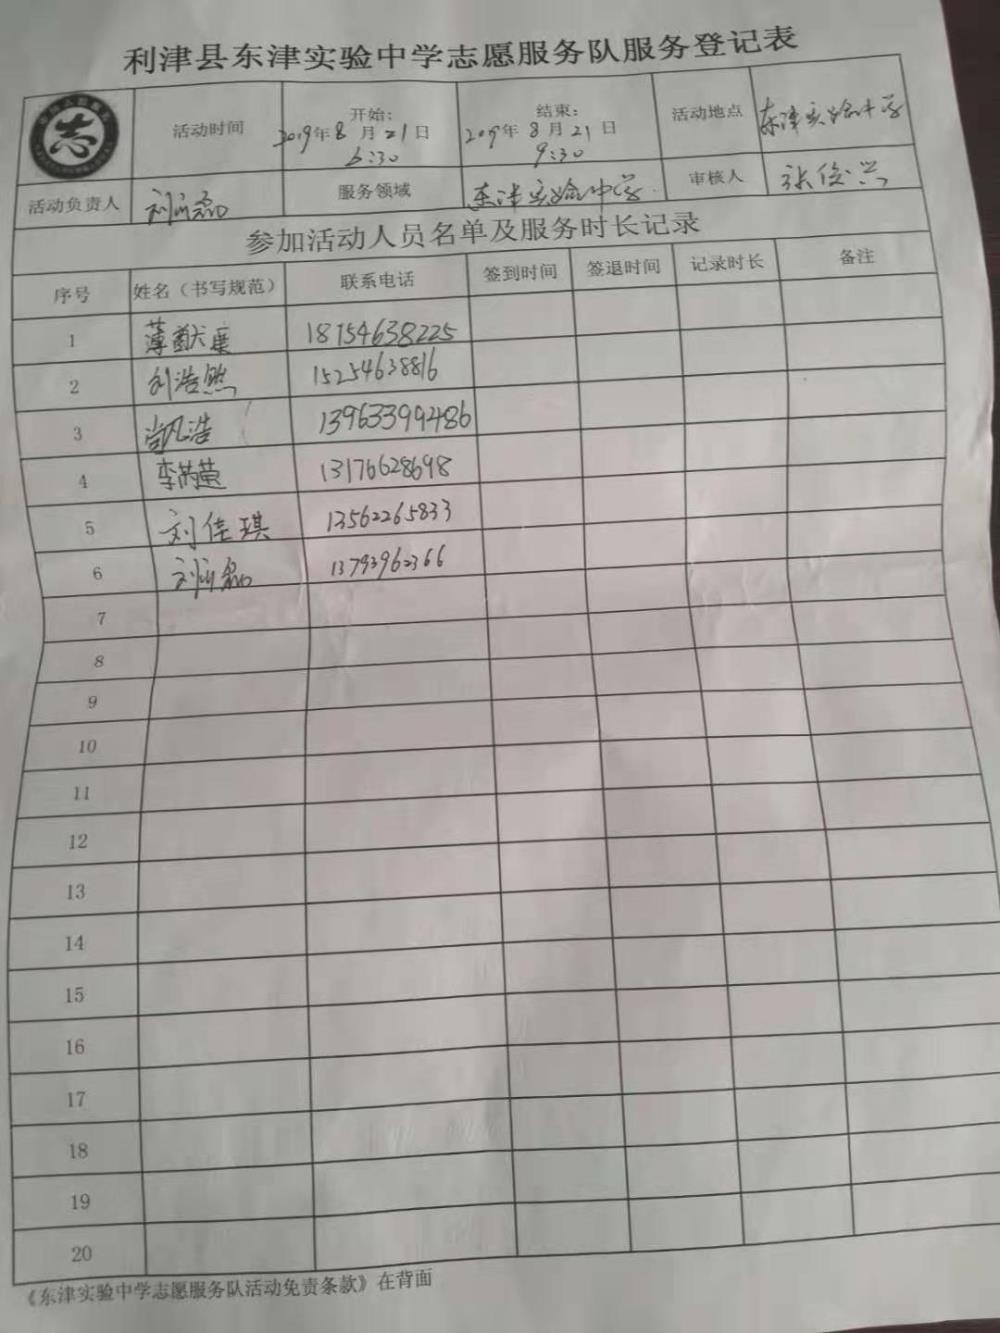 利津县东津实验中学志愿服务队服务登记表
志
活动时间 开始： 2019年8月21日 6:30 结束： 2019年8月21日 9:30 活动地点 东津实验中学
活动负责人 刘 磊 服务领域 东津实验中学 审核人 张俊兴
参加活动人员名单及服务时长记录
序号 姓名（书写规范） 联系电话 签到时间 签退时间 记录时长 备注
1 薄 18154638225
2 刘浩然 15254638816
3 尚凡浩 13963399486
4 李 13176628698
5 刘佳琪 13562265833
6 刘 磊 13793962366
7
8
9
10
11
12
13
14
15
16
17
18
19
20
《东津实验中学志愿服务队活动免责条款》在背面